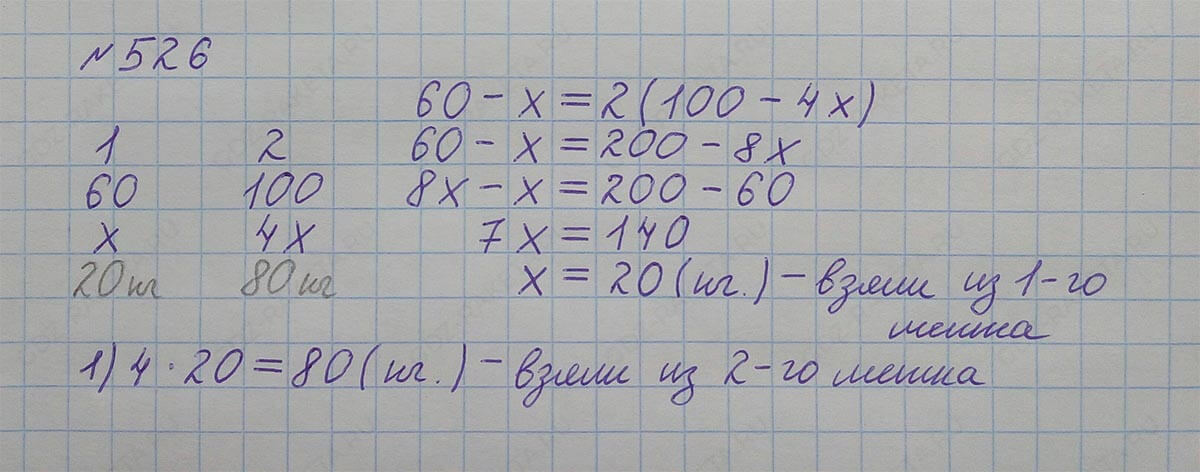 №526
60 - x = 2(100 - 4x)
1 2 60 - x = 200 - 8x
60 100 8x - x = 200 - 60
x 4x 7x = 140
20кг 80кг x = 20 (кг.) - взяли из 1-го
мешка
1) 4 · 20 = 80 (кг.) - взяли из 2-го мешка